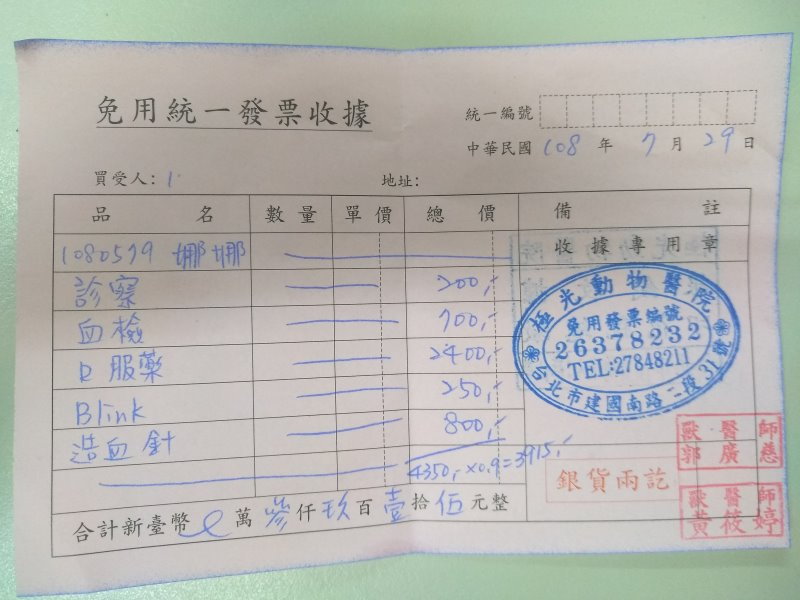 免用統一發票收據
統一編號
中華民國 108 年 7 月 29 日
買受人:
地址:
品名 數量 單價 總價 備註
1080579 娜娜
收據專用章
診察 200,-
血檢 700,-
口服藥 2400,-
Blink 250,-
造血針 800,-
4350,- x0.9=3915,-
合計新臺幣 萬 參 仟 玖 百 壹 拾 伍 元整
極光動物醫院
免用發票編號
26378232
TEL:27848211
台北市建國南路二段31號
銀貨兩訖
獸醫師
郭廣慈
獸醫師
黃筱婷